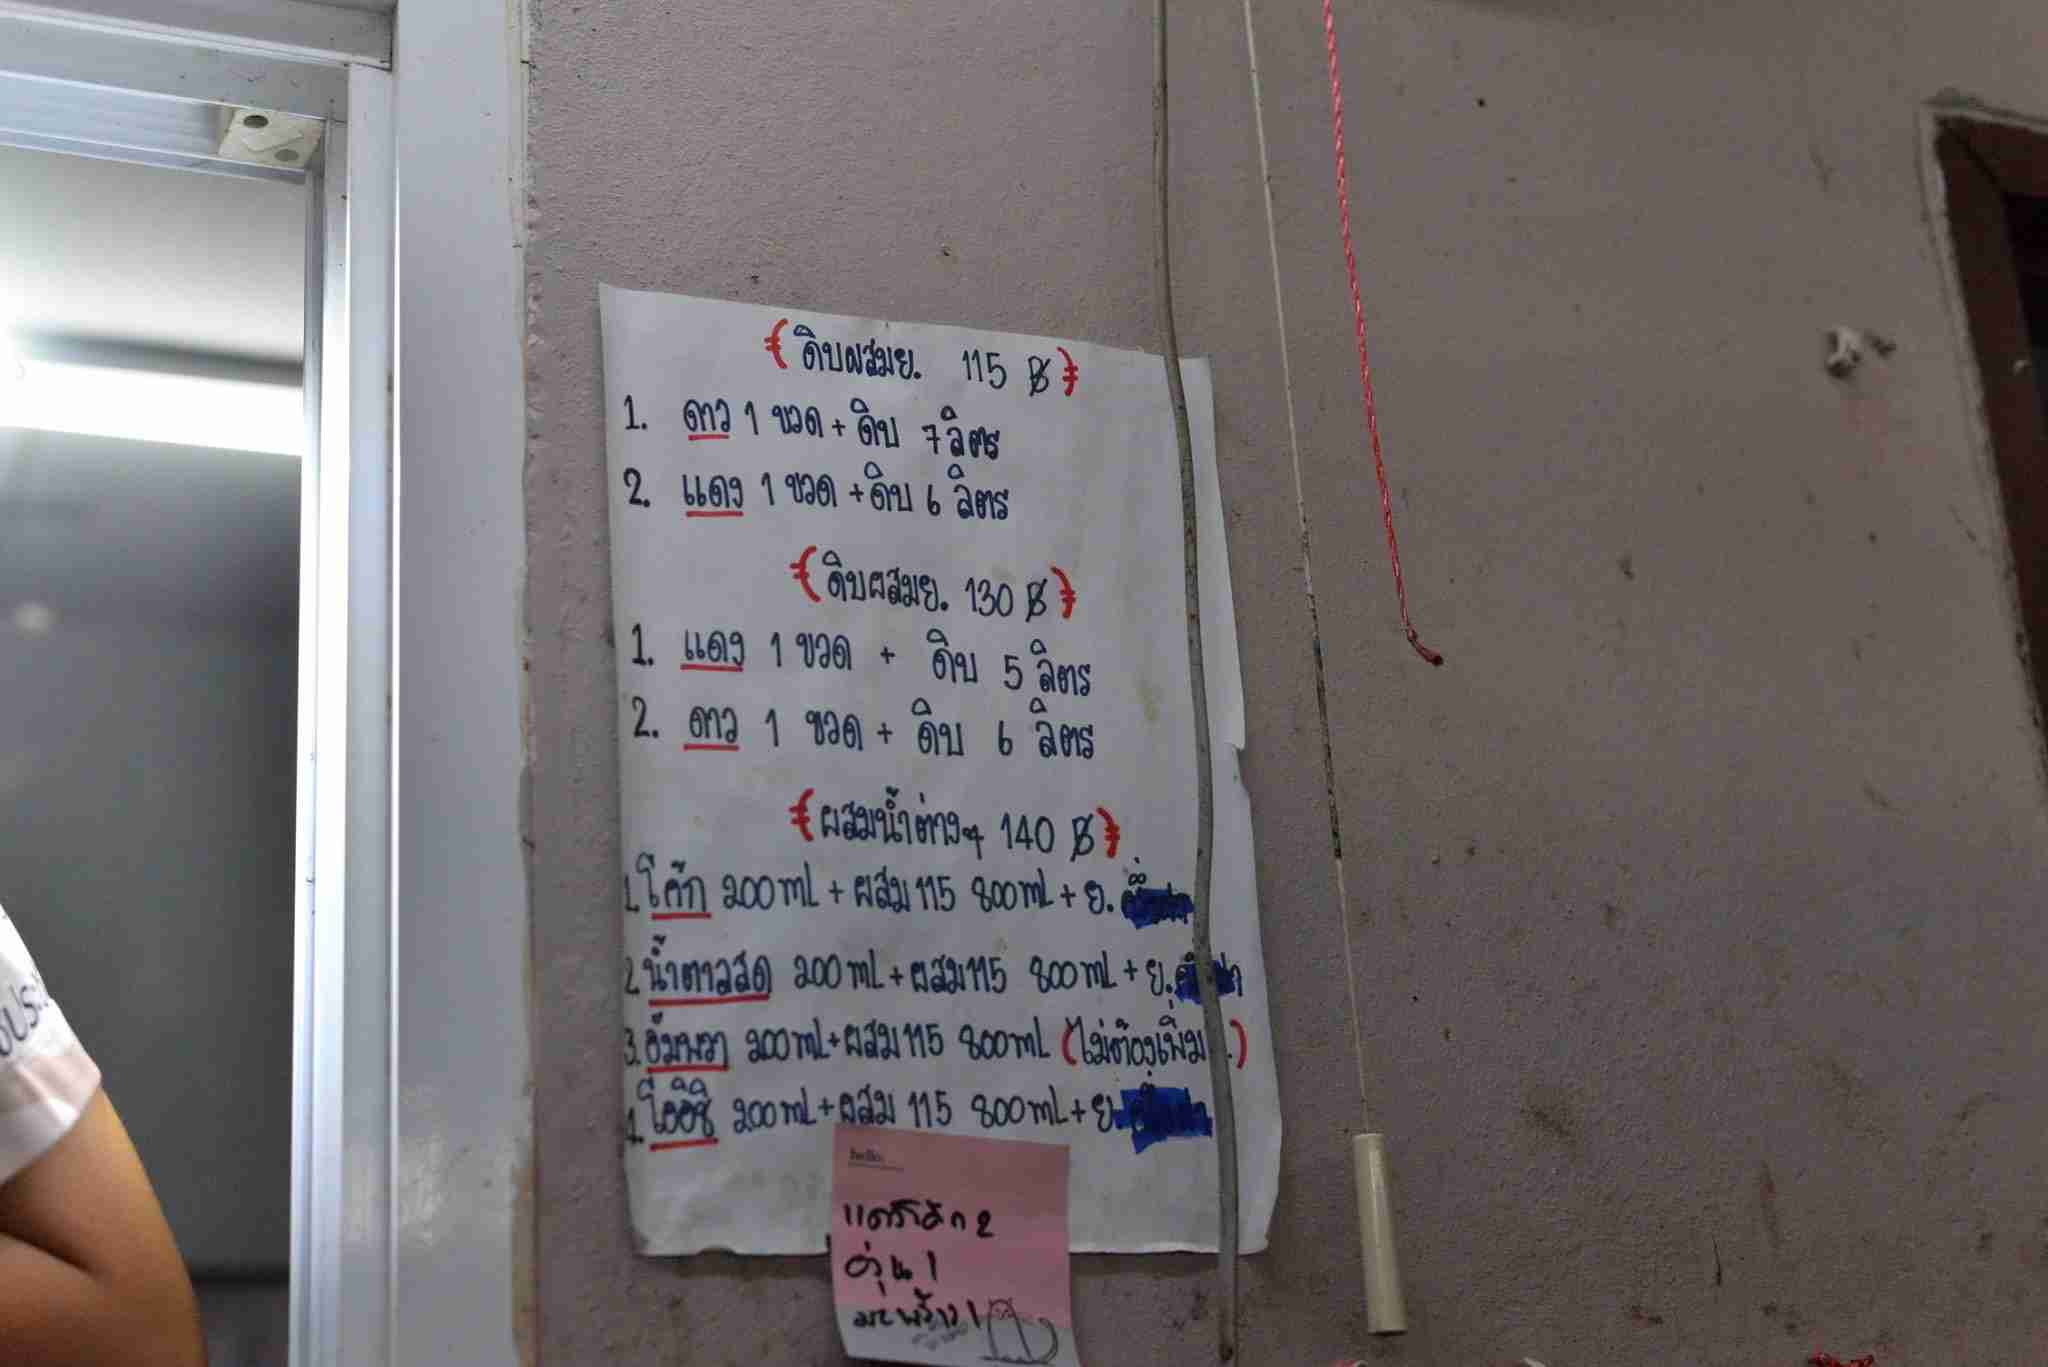 (ดิบผสมย. 115 ฿)
1. ดาว 1 ขวด + ดิบ 7 ลิตร
2. แดง 1 ขวด + ดิบ 6 ลิตร
(ดิบผสมย. 130 ฿)
1. แดง 1 ขวด + ดิบ 5 ลิตร
2. ดาว 1 ขวด + ดิบ 6 ลิตร
(ผสมน้ำต่างๆ 140 ฿)
1. โค๊ก 200 ml + ผสม 115 800 ml + ย.
2. น้ำตาลสด 200 ml + ผสม 115 800 ml + ย.
3. อัมพวา 200 ml + ผสม 115 800 ml (ไม่ต้องเพิ่ม .)
โออิชิ 200 ml + ผสม 115 800 ml + ย.
hello.
2
1
มะพร้าว 1